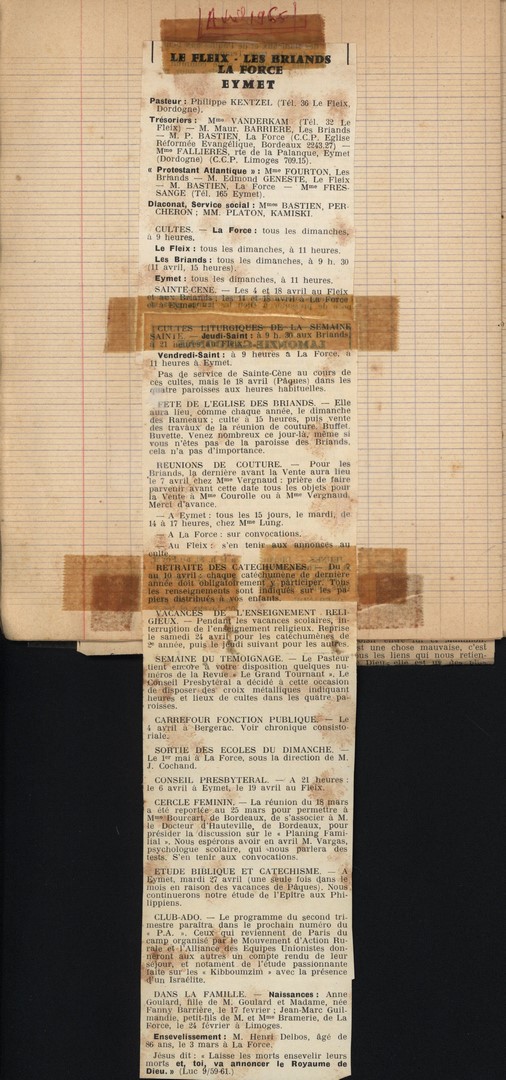 [Avril 1965]
LE FLEIX - LES BRIANDS
LA FORCE
EYMET
Pasteur : Philippe KENTZEL (Tél. 36 Le Fleix,
Dordogne).
Trésoriers : Mme VANDERKAM (Tél. 32 Le
Fleix) — M. Maur. BARRIERE, Les Briands
— M. P. BASTIEN, La Force (C.C.P. Eglise
Réformée Evangélique, Bordeaux 2243.27) —
Mme FALLIERES, rte de la Palanque, Eymet
(Dordogne) (C.C.P. Limoges 709.15).
« Protestant Atlantique » : Mme FOURTON, Les
Briands — M. Edmond GENESTE, Le Fleix
— M. BASTIEN, La Force — Mme FRES-
SANGE (Tél. 165 Eymet).
Diaconat, Service social : Mmes BASTIEN, PER-
CHERON ; MM. PLATON, KAMISKI.
CULTES. — La Force : tous les dimanches,
à 9 heures.
Le Fleix : tous les dimanches, à 11 heures.
Les Briands : tous les dimanches, à 9 h. 30
(11 avril, 15 heures).
Eymet : tous les dimanches, à 11 heures.
SAINTE-CENE. — Les 4 et 18 avril au Fleix
et aux Briands ; les 11 et 18 avril à La Force
et à Eymet.
CULTES LITURGIQUES DE LA SEMAINE
SAINTE. — Jeudi-Saint : à 9 h. 30 aux Briands,
à 21
Vendredi-Saint : à 9 heures à La Force, à
11 heures à Eymet.
Pas de service de Sainte-Cène au cours de
ces cultes, mais le 18 avril (Pâques) dans les
quatre paroisses aux heures habituelles.
FETE DE L'EGLISE DES BRIANDS. — Elle
aura lieu, comme chaque année, le dimanche
des Rameaux ; culte à 15 heures, puis vente
des travaux de la réunion de couture. Buffet.
Buvette. Venez nombreux ce jour-là, même si
vous n'êtes pas de la paroisse des Briands,
cela n'a pas d'importance.
REUNIONS DE COUTURE. — Pour les
Briands, la dernière avant la Vente aura lieu
le 7 avril chez Mme Vergnaud ; prière de faire
parvenir avant cette date tous les objets pour
la Vente à Mme Courolle ou à Mme Vergnaud.
Merci d'avance.
— A Eymet : tous les 15 jours, le mardi, de
14 à 17 heures, chez Mme Lung.
— A La Force : sur convocations.
— Au Fleix : s'en tenir aux annonces au
culte.
RETRAITE DES CATECHUMENES. — Du
au 10 avril : chaque catéchumène de dernière
année doit obligatoirement y participer. Tous
les renseignements sont indiqués sur les pa-
piers distribués à vos enfants.
VACANCES DE L'ENSEIGNEMENT RELI-
GIEUX. — Pendant les vacances scolaires, in-
terruption de l'enseignement religieux. Reprise
le samedi 24 avril pour les catéchumènes de
2e année, puis le jeudi suivant pour les autres.
SEMAINE DU TEMOIGNAGE. — Le Pasteur
tient encore à votre disposition quelques nu-
méros de la Revue « Le Grand Tournant ». Le
Conseil Presbytéral a décidé à cette occasion
de disposer des croix métalliques indiquant
heures et lieux de cultes dans les quatre pa-
roisses.
CARREFOUR FONCTION PUBLIQUE. — Le
4 avril à Bergerac. Voir chronique consisto-
riale.
SORTIE DES ECOLES DU DIMANCHE. —
Le 1er mai à La Force, sous la direction de M.
J. Cochand.
CONSEIL PRESBYTERAL. — A 21 heures :
le 6 avril à Eymet, le 19 avril au Fleix.
CERCLE FEMININ. — La réunion du 18 mars
a été reportée au 25 mars pour permettre à
Mme Bourcart, de Bordeaux, de s'associer à M.
le Docteur d'Hauteville, de Bordeaux, pour
présider la discussion sur le « Planing Fami-
lial ». Nous espérons avoir en avril M. Vargas,
psychologue scolaire, qui nous parlera des
tests. S'en tenir aux convocations.
ETUDE BIBLIQUE ET CATECHISME. — A
Eymet, mardi 27 avril (une seule fois dans le
mois en raison des vacances de Pâques). Nous
continuerons notre étude de l'Epître aux Phi-
lippiens.
CLUB-ADO. — Le programme du second tri-
mestre paraîtra dans le prochain numéro du
« P.A. ». Ceux qui reviennent de Paris du
camp organisé par le Mouvement d'Action Ru-
rale et l'Alliance des Equipes Unionistes don-
neront aux autres un compte rendu de leur
séjour, et notament de l'étude passionnante
faite sur les « Kibboumzim » avec la présence
d'un Israélite.
DANS LA FAMILLE. — Naissances : Anne
Goulard, fille de M. Goulard et Madame, née
Fanny Barrière, le 17 février ; Jean-Marc Guil-
mandie, petit-fils de M. et Mme Bramerie, de La
Force, le 24 février à Limoges.
Ensevelissement : M. Henri Delbos, âgé de
86 ans, le 3 mars à La Force.
Jésus dit : « Laisse les morts ensevelir leurs
morts et, toi, va annoncer le Royaume de
Dieu. » (Luc 9/59-61.)
est une chose mauvaise, c'est
us les liens qui nous retien-